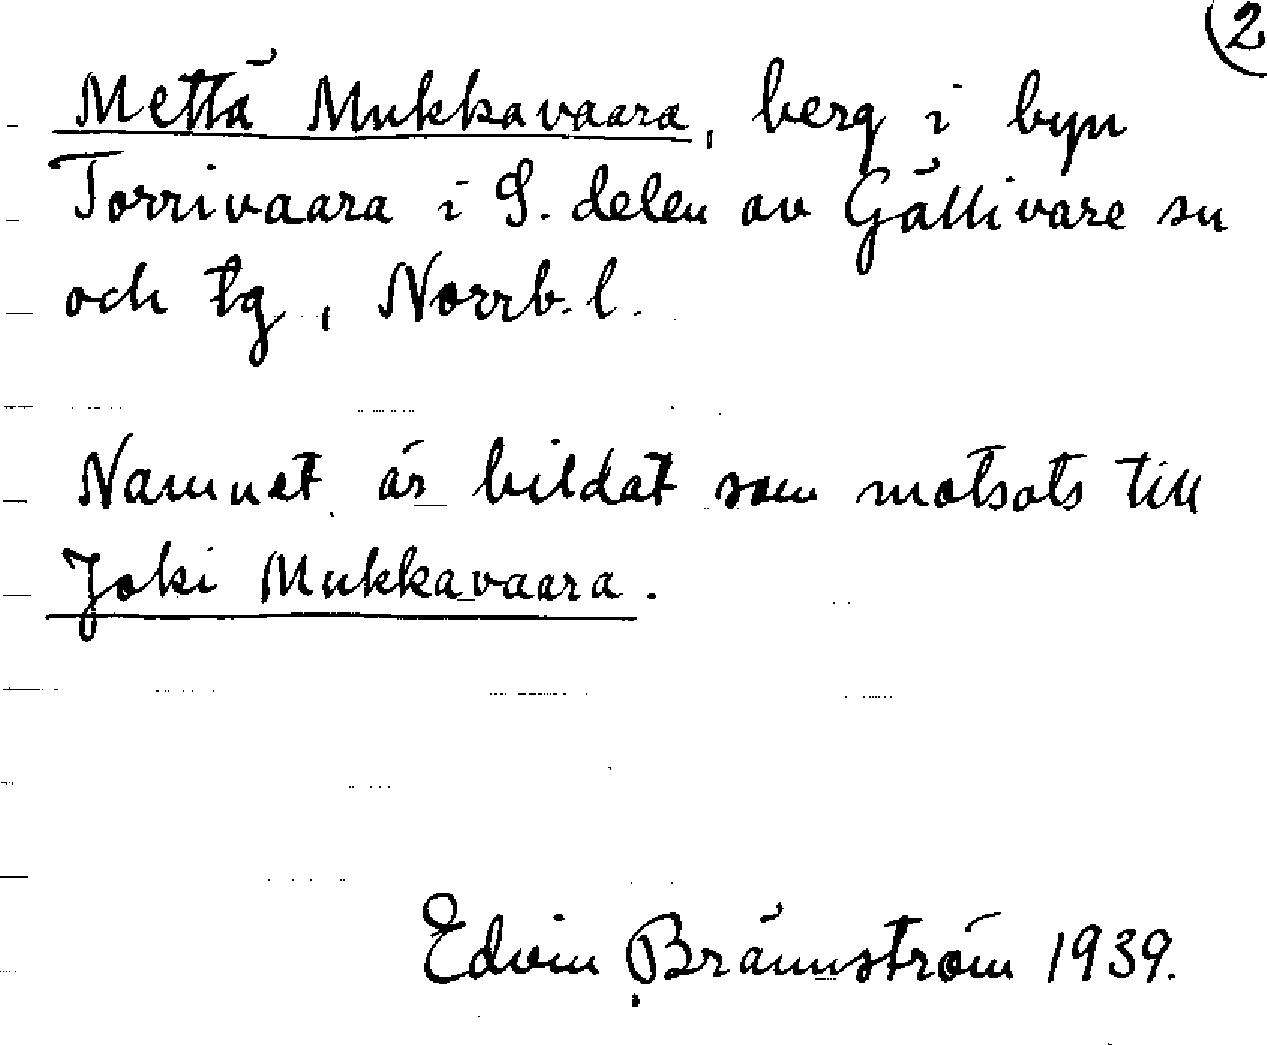 2
Mettä Mukkavaara, berg i byn
Torrivaara i S. delen av Gällivare sn
och tg, Norrb. l.
Namnet är bildat som motsats till
Joki Mukkavaara.
Edvin Brännström 1939.